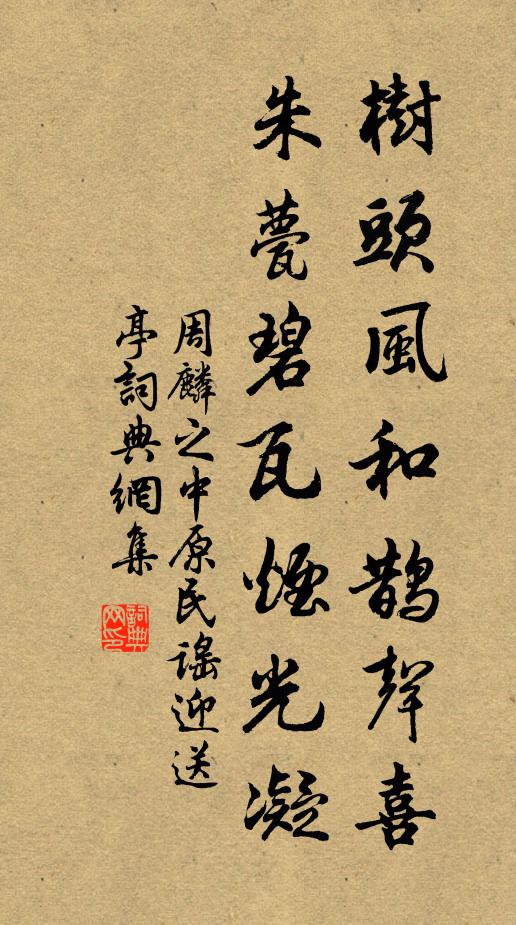 樹頭風和鵲聲喜
朱甍碧瓦煙光凝
周麟之中原民謠迎送
亭詞典網集
詞典網印